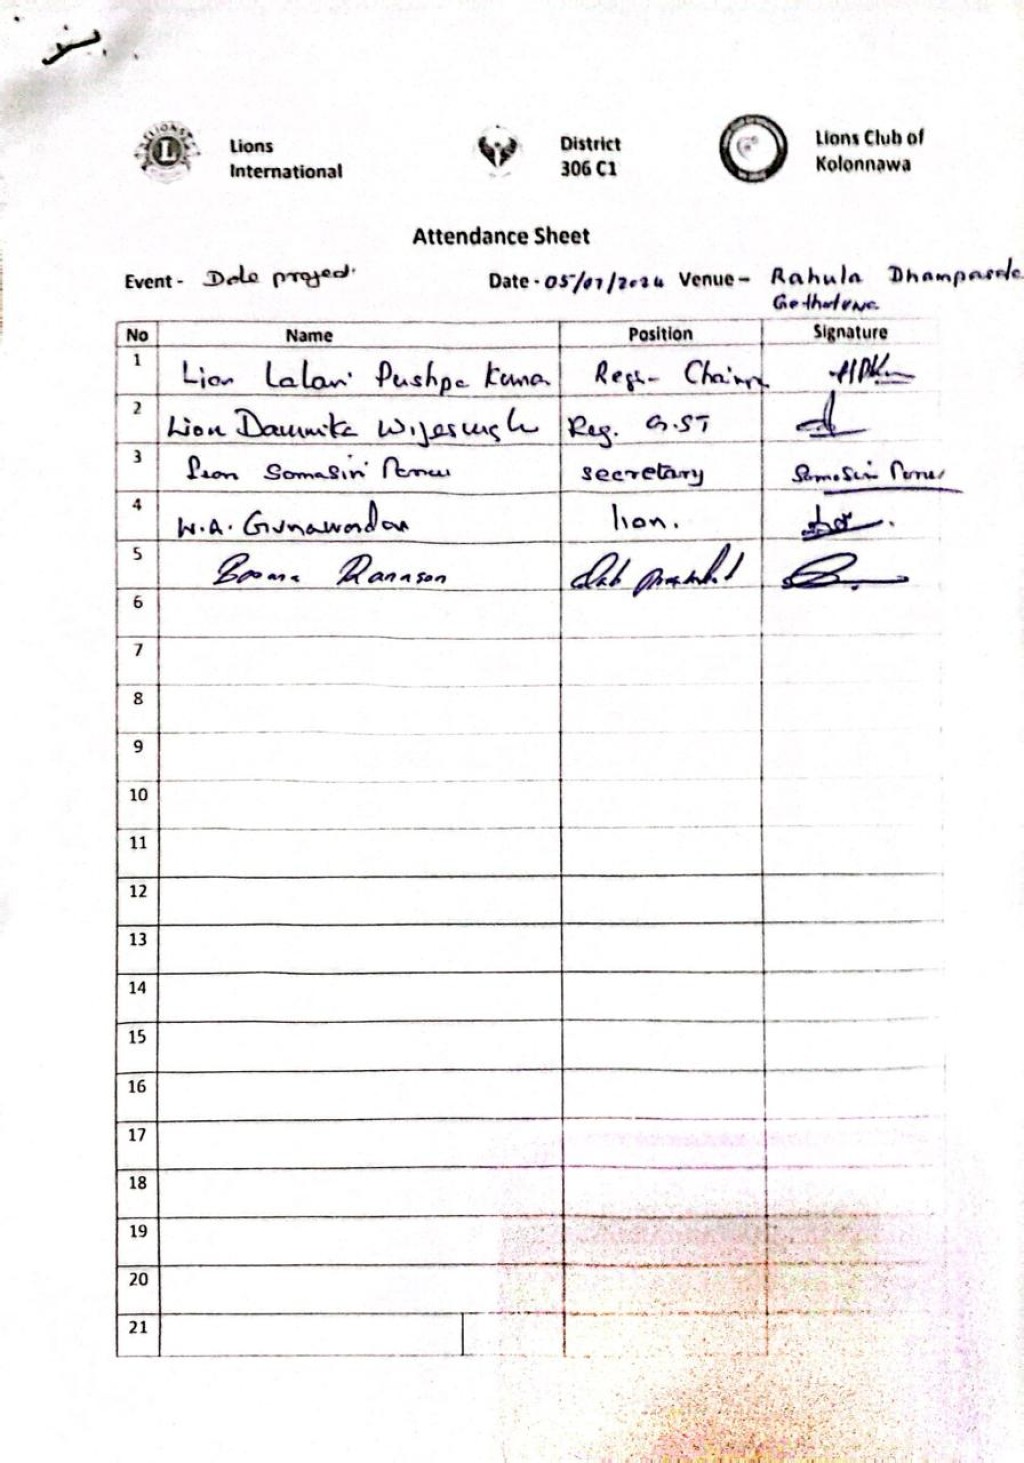 Lions
International
District
306 C1
Lions Club of
Kolonnawa
Attendance Sheet
Event - Dole project. Date - 05/07/2024 Venue - Rahula Dhampasala
Gothatuwa
No Name Position Signature
1 Lion Lalani Pushpa Kumara Regi- Chairm
2 Lion Dammika Wijesingh Reg. G.ST
3 Lion Somasiri Perera secretary Somasiri Perera
4 W.A. Gunawardana lion.
5 Ranason
6
7
8
9
10
11
12
13
14
15
16
17
18
19
20
21